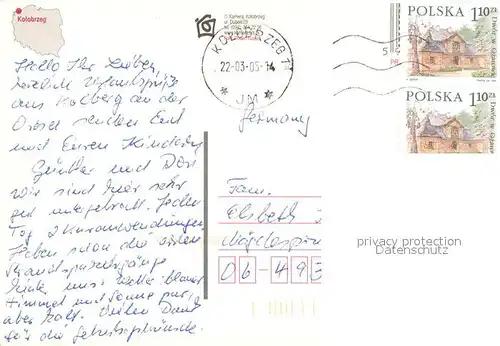 Kołobrzeg
Hallo Ihr Lieben,
herzliche Urlaubsgrüße
aus Kolberg an der
Ostsee senden Euch
und Euren Kindern
Günther und Dori
wir sind hier sehr
gut untergebracht. Jeden
Tag 2 Kuranwendungen
Haben schon die ersten
Strandspaziergänge
hinter uns. Wetter: blauer
Himmel und Sonne pur,
aber kalt. Vielen Dank
für die Geburtstagswünsche.
KOŁOBRZEG 1
22-03-05-14
* JM *
Germany
Fam.
Elisbeth
06-493
POLSKA 1,10 ZŁ
POLSKA 1,10 ZŁ
5
PR
privacy protection
Datenschutz